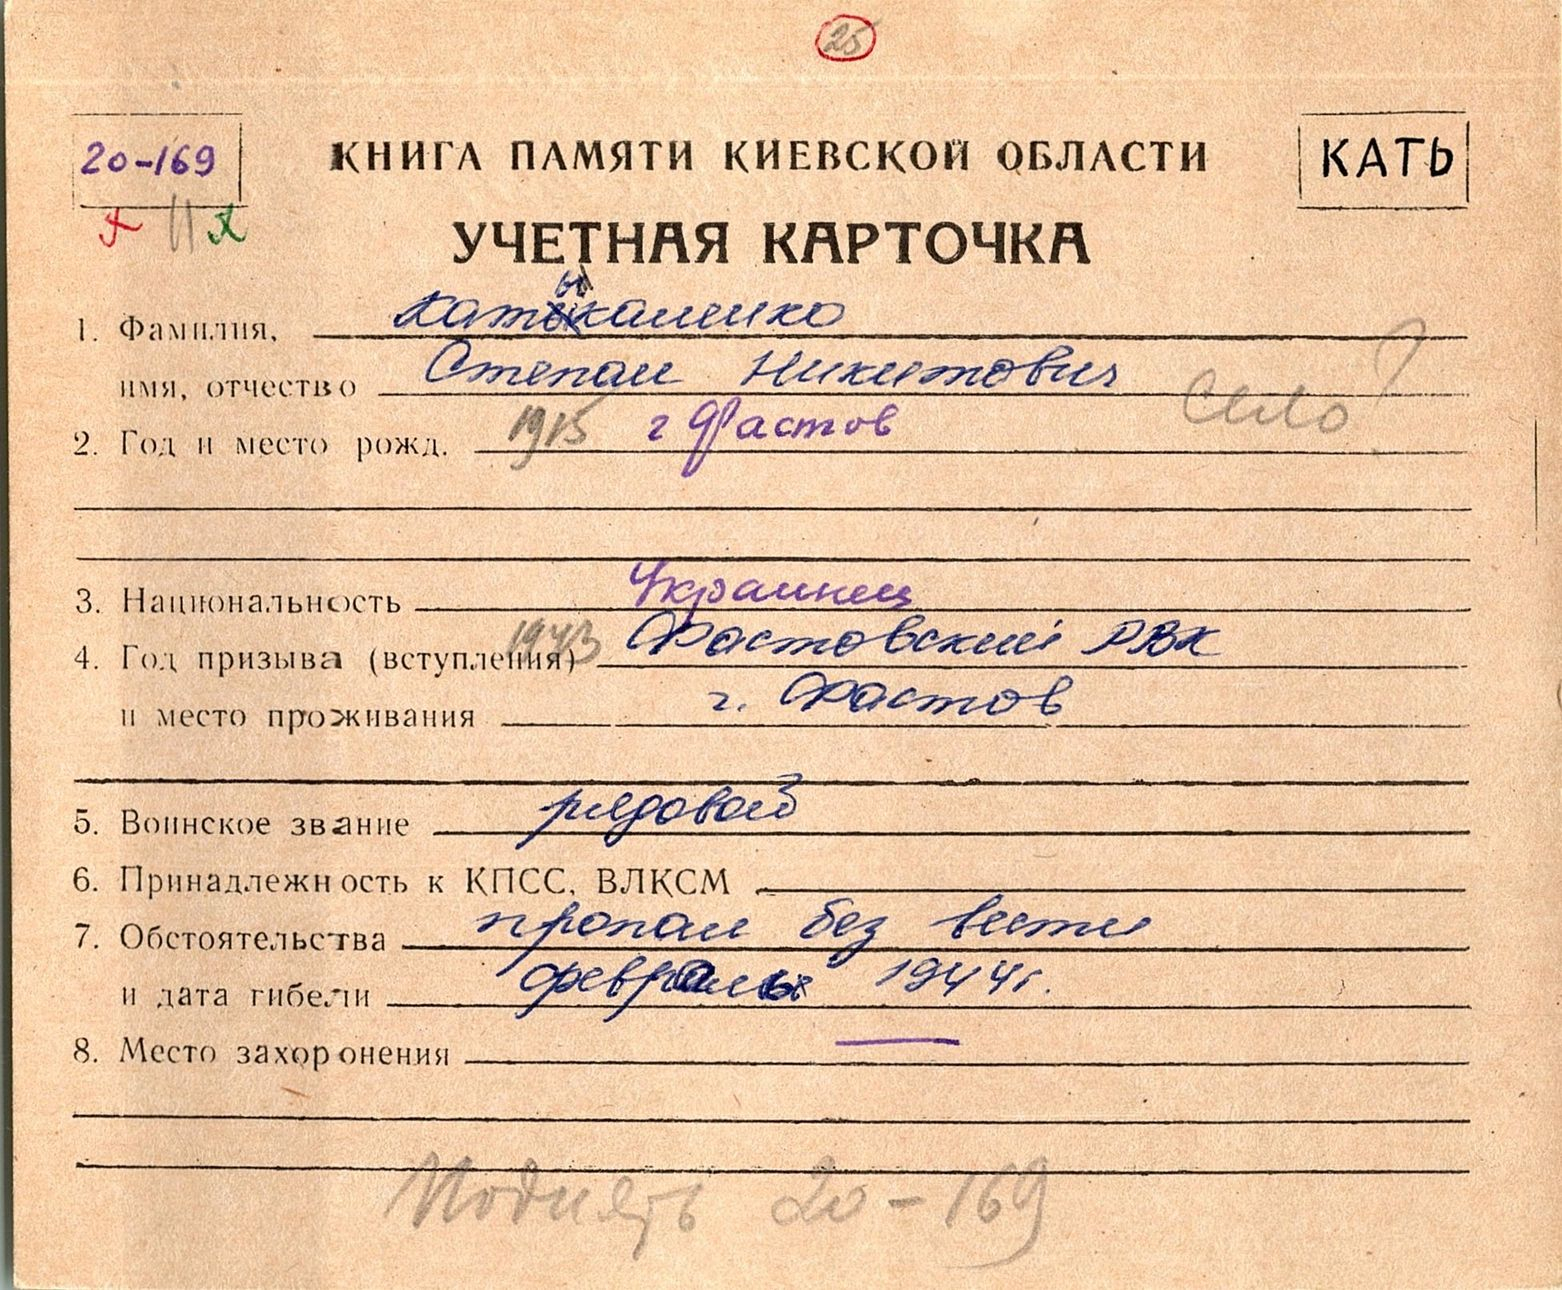 25
20-169
КНИГА ПАМЯТИ КИЕВСКОЙ ОБЛАСТИ
КАТЬ
УЧЕТНАЯ КАРТОЧКА
1. Фамилия,
имя, отчество Степан Никитович
село?
2. Год и место рожд. 1915 г Фастов
3. Национальность Украинец
4. Год призыва (вступления) 1943 Фастовский РВК
и место проживания г. Фастов
5. Воинское звание рядовой
6. Принадлежность к КПСС, ВЛКСМ
7. Обстоятельства пропал без вести
и дата гибели февраль 1944г.
8. Место захоронения —
Поднять 20-169